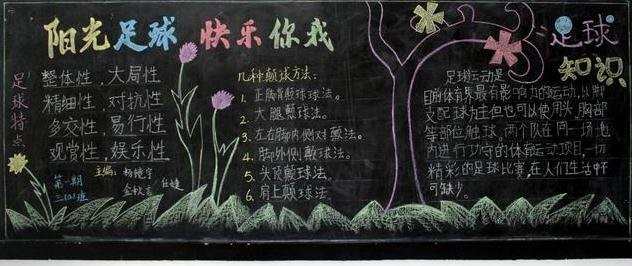 阳光足球 快乐你我
足球特点
整体性,大局性
精细性,对抗性
多变性,易行性
观赏性,娱乐性
主编:
第一期
三(10)班
几种颠球方法:
1. 正脚背颠球球法。
2. 大腿颠球法。
3. 左右脚内侧对颠法。
4. 脚外侧颠球法。
5. 头顶颠球法。
6. 肩上颠球法。
足球知识
足球运动是
目前体育界最有影响力的运动,从脚
支配球为主但也可以使用头,胸部
等部位触球,两个队在同一场地
内进行攻守的体育运动项目,一切
精彩的足球比赛,在人们生活中不
可缺少。